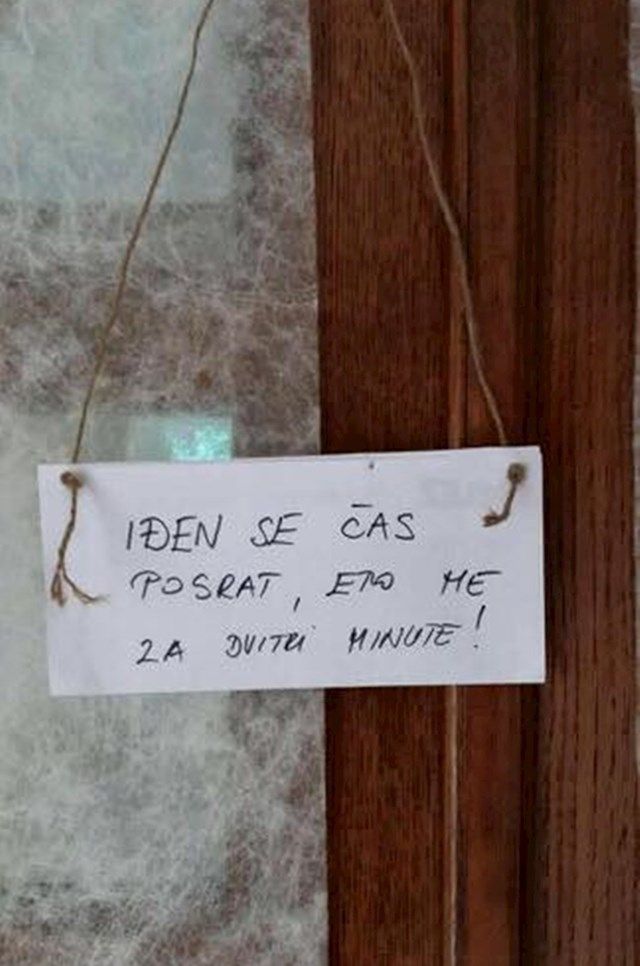 IĐEN SE ČAS
POSRAT, ETO ME
ZA DVITRI MINUTE!